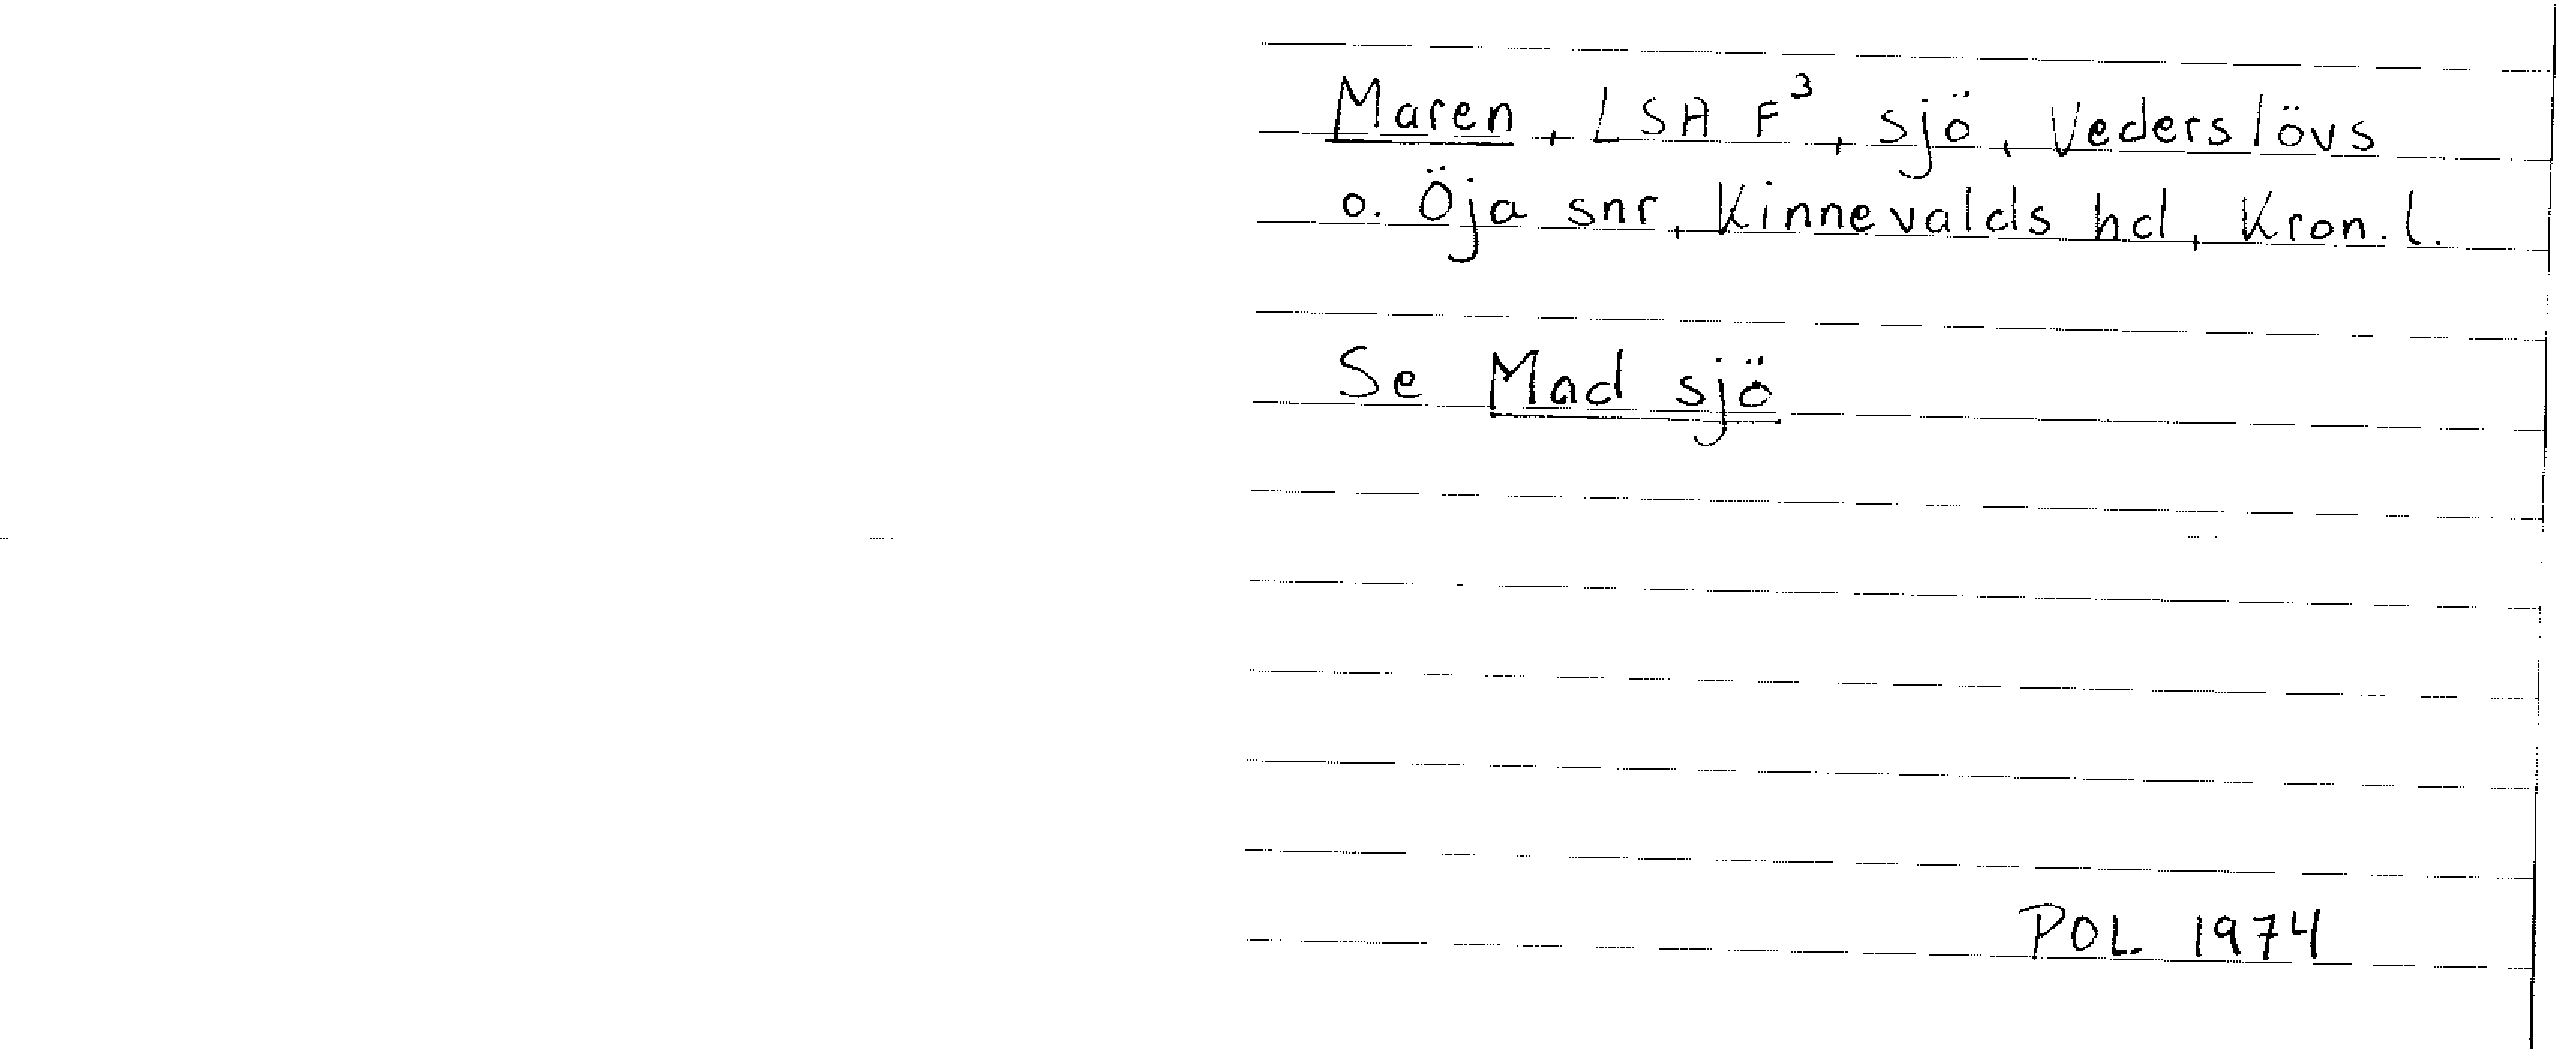 Maren, LSA F³, sjö, Vederslövs
o. Öja snr, Kinnevalds hd, Kron. l.
Se Mad sjö
POL 1974